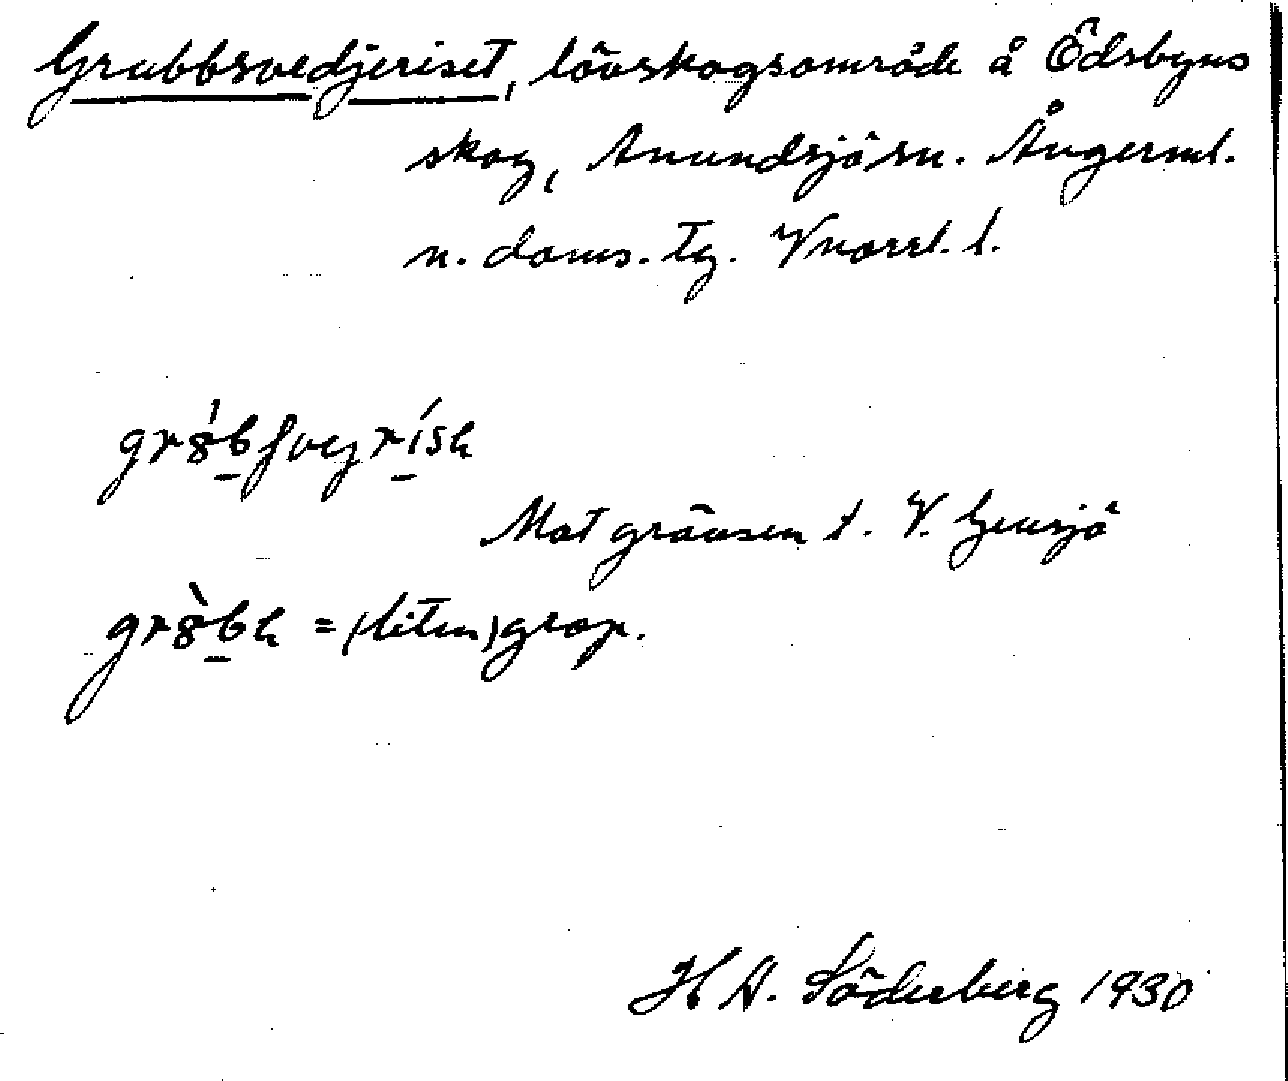 Grubbsvedjeriset, lövskogsområde å Ödsbyns
skog, Anundsjö sn. Ångerml.
n. doms. tg. Vnorrl. l.
Mot gränsen t. V. Gensjö
= (liten) grop.
H A. Söderberg 1930